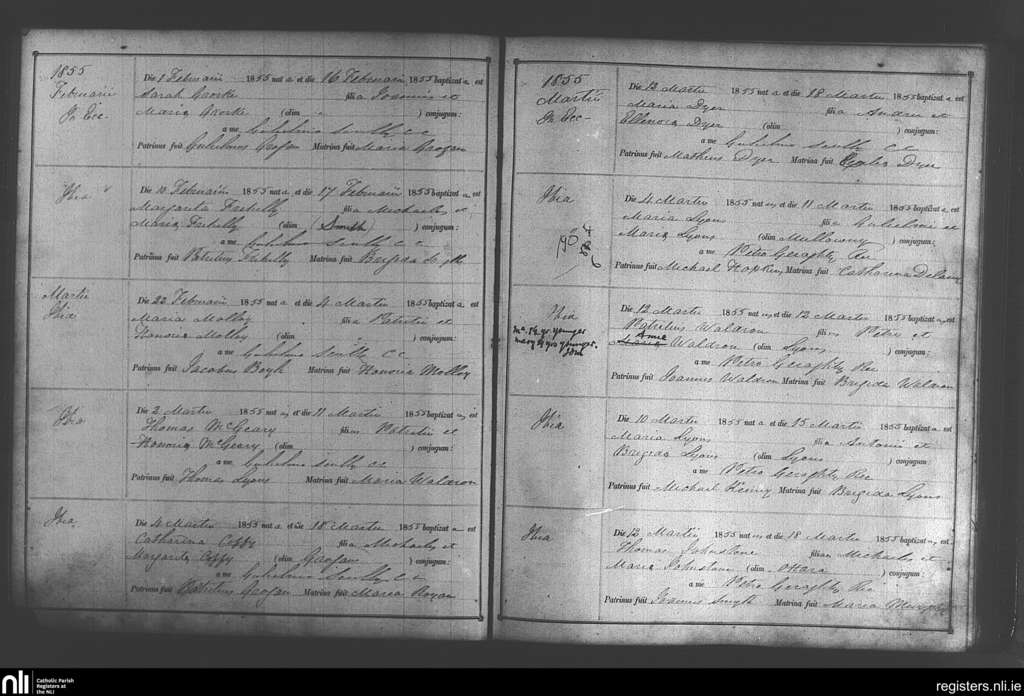 1855
Februarii
In Ecc.
Die 1 Februarii 1855 nat a et die 16 Februarii 1855 baptizat a est
Sarah filia Joannis et
Maria (olim ) conjugum:
a me Gulielmo C.C.
Patrinus fuit Gulielmus Grogan Matrina fuit Maria Grogan
Ibia
Die 10 Februarii 1855 nat a et die 17 Februarii 1855 baptizat a est
Margarita filia Michaelis et
Maria (olim Smith) conjugum:
a me Gulielmo C.C.
Patrinus fuit Patritius Matrina fuit Brigida
Martii
Ibia
Die 22 Februarii 1855 nat a et die 4 Martii 1855 baptizat a est
Maria Molloy filia Patritii et
Honoria Molloy (olim ) conjugum:
a me Gulielmo C.C.
Patrinus fuit Jacobus Boyle Matrina fuit Honoria Molloy
Ibia
Die 2 Martii 1855 nat us et die 11 Martii 1855 baptizat us est
Thomas McGeary filius Patritii et
Honoria McGeary (olim ) conjugum:
a me Gulielmo C.C.
Patrinus fuit Thomas Lyons Matrina fuit Maria Waldron
Ibia
Die 4 Martii 1855 nat a et die 18 Martii 1855 baptizat a est
Catharina filia Michaelis et
Margarita (olim Grogan) conjugum:
a me Gulielmo C.C.
Patrinus fuit Patritius Grogan Matrina fuit Maria
1855
Martii
In Ecc-
Die 12 Martii 1855 nat a et die 18 Martii 1855 baptizat a est
Maria Dyer filia Andrei et
Ellenora Dyer (olim ) conjugum:
a me Gulielmo C.C.
Patrinus fuit Matheus Dyer Matrina fuit Dyer
Ibia
Die 4 Martii 1855 nat us et die 11 Martii 1855 baptizat a est
Maria Lyons filia Gulielmi et
Maria Lyons (olim ) conjugum:
a me Petro Geraghty Rec
Patrinus fuit Michael Hopkins Matrina fuit Catharina
Ibia
Ma. 1½ yr younger
mary 4 yrs younger.
Die 12 Martii 1855 nat us et die 12 Martii 1855 baptizat us est
Patritius Waldron filius Petri et
Anne
Waldron (olim Lyons ) conjugum:
a me Petro Geraghty Rec
Patrinus fuit Joannes Waldron Matrina fuit Brigida Waldron
Ibia
Die 10 Martii 1855 nat a et die 15 Martii 1855 baptizat a est
Maria Lyons filia Antonii et
Brigida Lyons (olim Lyons ) conjugum:
a me Petro Geraghty Rec
Patrinus fuit Michael Kenny Matrina fuit Brigida Lyons
Ibia
Die 12 Martii 1855 nat us et die 18 Martii 1855 baptizat us est
Thomas Johnstone filius Michaelis et
Maria Johnstone (olim OHara ) conjugum:
a me Petro Geraghty Rec
Patrinus fuit Joannes Smyth Matrina fuit Maria
nli Catholic Parish
Registers at
the NLI
registers.nli.ie